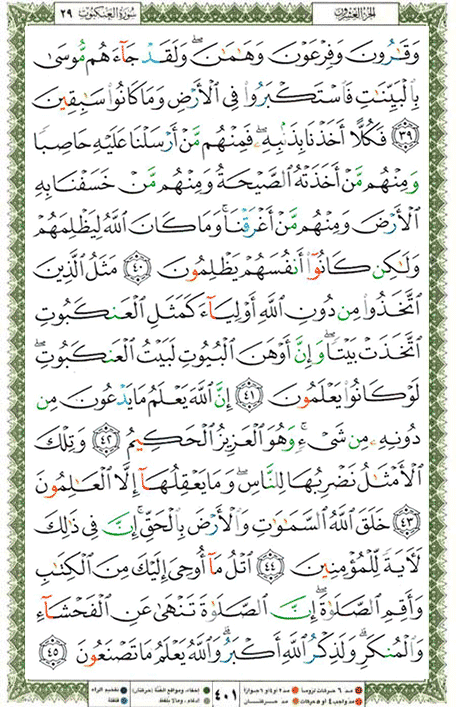 سُورَةُ العَنكَبُوت ٢٩
الجُزءُ العِشرُون
وَقَٰرُونَ وَفِرْعَوْنَ وَهَٰمَٰنَ ۖ وَلَقَدْ جَآءَهُم مُّوسَىٰ
بِالْبَيِّنَٰتِ فَاسْتَكْبَرُوا۟ فِى الْأَرْضِ وَمَا كَانُوا۟ سَٰبِقِينَ
﴿٣٩﴾ فَكُلًّا أَخَذْنَا بِذَنۢبِهِۦ ۖ فَمِنْهُم مَّنْ أَرْسَلْنَا عَلَيْهِ حَاصِبًا
وَمِنْهُم مَّنْ أَخَذَتْهُ الصَّيْحَةُ وَمِنْهُم مَّنْ خَسَفْنَا بِهِ
الْأَرْضَ وَمِنْهُم مَّنْ أَغْرَقْنَا ۚ وَمَا كَانَ اللَّهُ لِيَظْلِمَهُمْ
وَلَٰكِن كَانُوٓا۟ أَنفُسَهُمْ يَظْلِمُونَ ﴿٤٠﴾ مَثَلُ الَّذِينَ
اتَّخَذُوا۟ مِن دُونِ اللَّهِ أَوْلِيَآءَ كَمَثَلِ الْعَنكَبُوتِ
اتَّخَذَتْ بَيْتًا ۖ وَإِنَّ أَوْهَنَ الْبُيُوتِ لَبَيْتُ الْعَنكَبُوتِ ۖ
لَوْ كَانُوا۟ يَعْلَمُونَ ﴿٤١﴾ إِنَّ اللَّهَ يَعْلَمُ مَا يَدْعُونَ مِن
دُونِهِۦ مِن شَىْءٍ ۚ وَهُوَ الْعَزِيزُ الْحَكِيمُ ﴿٤٢﴾ وَتِلْكَ
الْأَمْثَٰلُ نَضْرِبُهَا لِلنَّاسِ ۖ وَمَا يَعْقِلُهَآ إِلَّا الْعَٰلِمُونَ
﴿٤٣﴾ خَلَقَ اللَّهُ السَّمَٰوَٰتِ وَالْأَرْضَ بِالْحَقِّ ۚ إِنَّ فِى ذَٰلِكَ
لَآيَةً لِّلْمُؤْمِنِينَ ﴿٤٤﴾ اتْلُ مَآ أُوحِىَ إِلَيْكَ مِنَ الْكِتَٰبِ
وَأَقِمِ الصَّلَوٰةَ ۖ إِنَّ الصَّلَوٰةَ تَنْهَىٰ عَنِ الْفَحْشَآءِ
وَالْمُنكَرِ ۗ وَلَذِكْرُ اللَّهِ أَكْبَرُ ۗ وَاللَّهُ يَعْلَمُ مَا تَصْنَعُونَ ﴿٤٥﴾
٤٠١